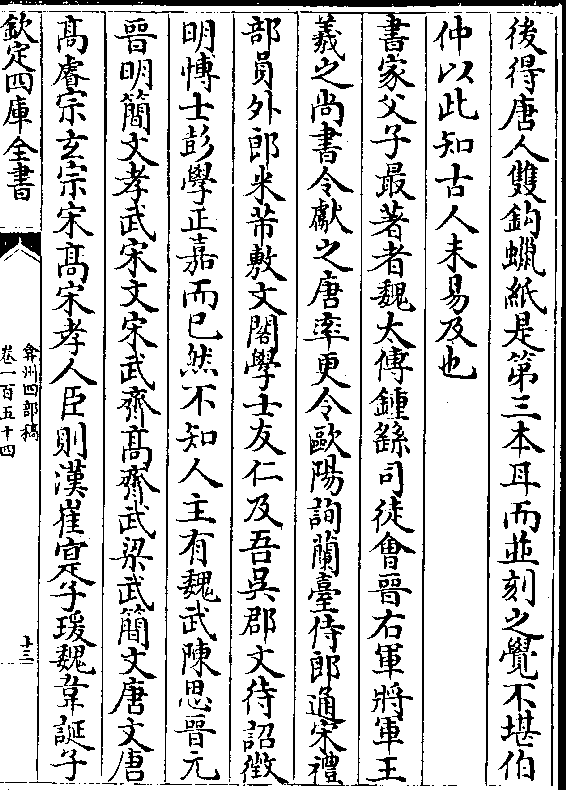 後得唐人雙鈎蠟紙是第三本耳而並刻之覺不堪伯
仲以此知古人未易及也
書家父子最著者魏太傅鍾繇司徒會晉右軍將軍王
羲之尚書令獻之唐率更令歐陽詢蘭臺侍郎通宋禮
部員外郎米芾敷文閣學士友仁及吾吳郡文待詔徵
明愽士彭學正嘉而已然不知人主有魏武陳思晉元
晉明簡文孝武宋文宋武齊髙齊武梁武簡文唐文唐
髙睿宗玄宗宋髙宋孝人臣則漢崔寔子瑗魏韋誕子
欽定四庫全書
弇州四部稿
卷一百五十四
十三